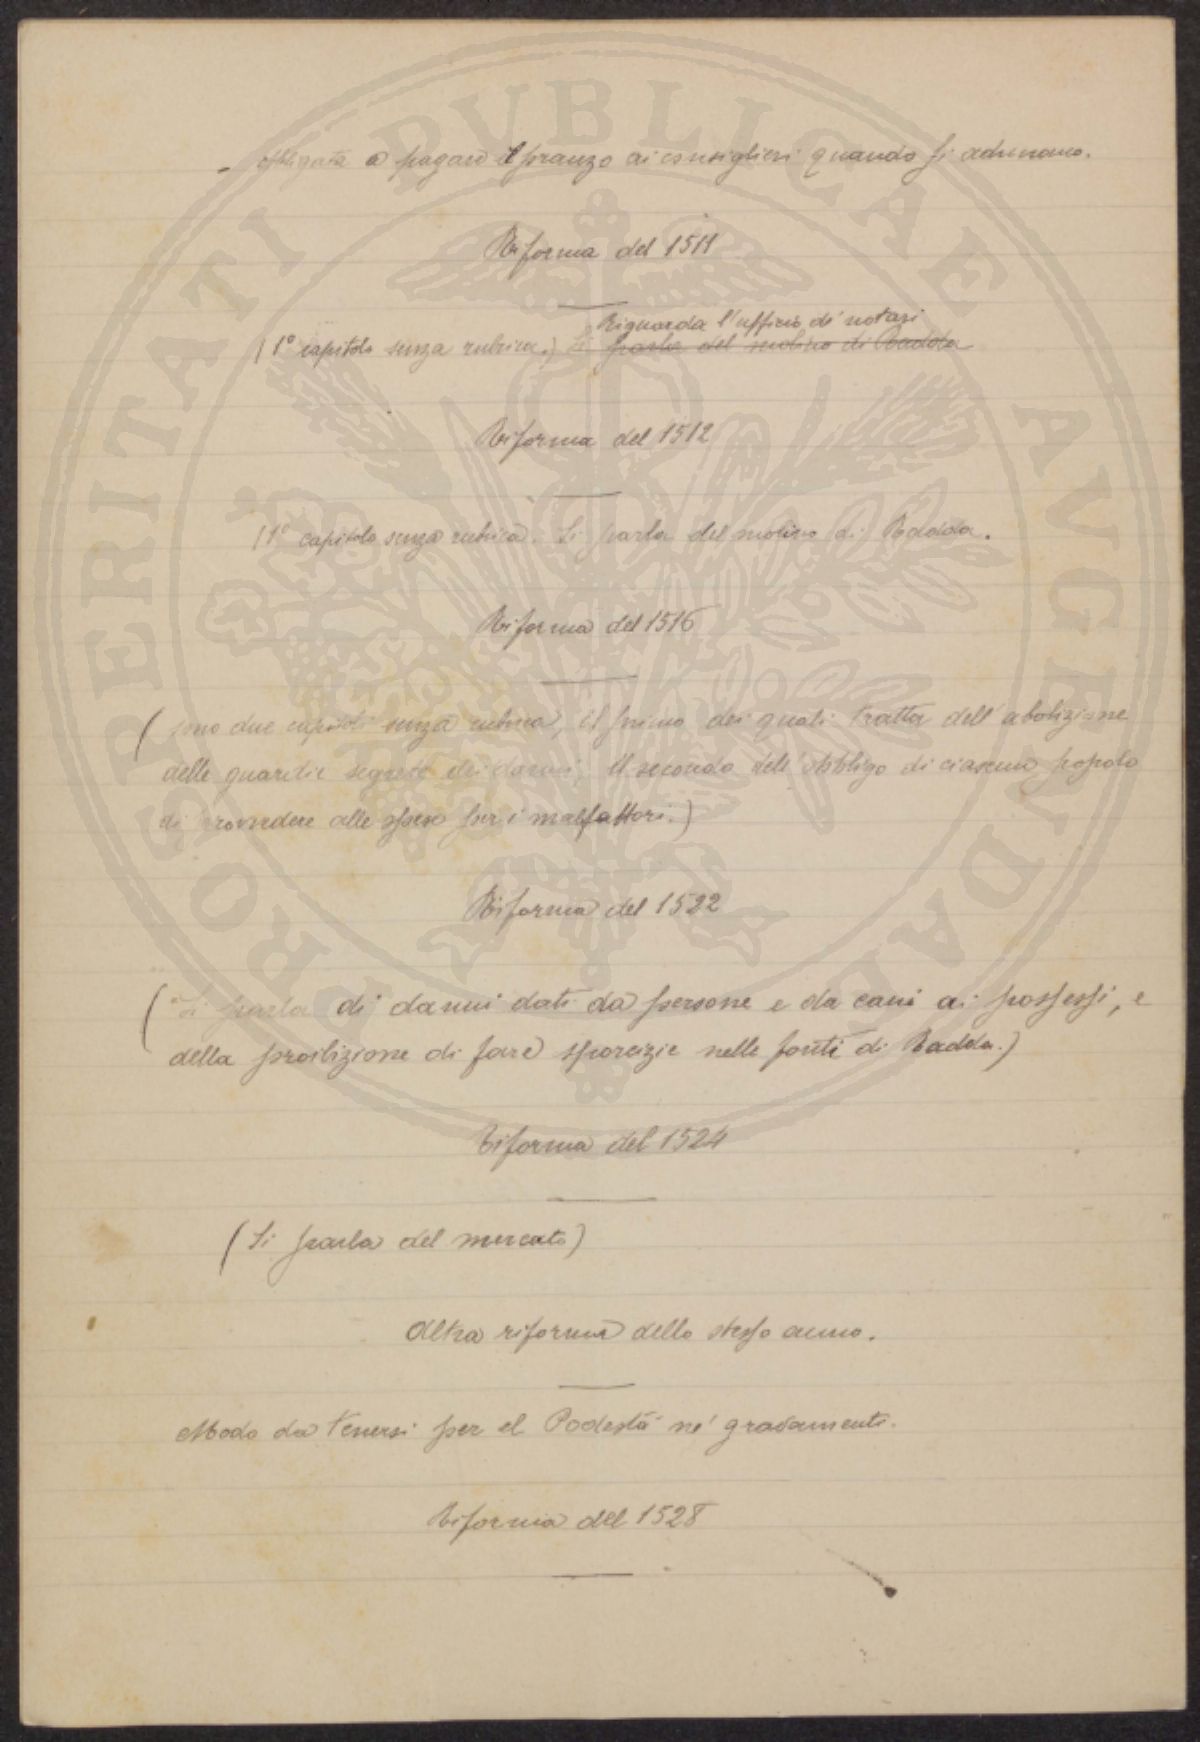 - obbligata a pagare il pranzo ai consiglieri quando si adunano.
Riforma del 1511
Riguarda l'ufficio de' notari
(1º capitolo senza rubrica.) Si parla del molino di Radda
Riforma del 1512
(1º capitolo senza rubrica. Si parla del molino di Radda.
Riforma del 1516
(sono due capitoli senza rubrica, il primo dei quali tratta dell'abolizione
delle guardie segrete dei danni, il secondo dell'obbligo di ciascun popolo
di provvedere alle spese per i malfattori.)
Riforma del 1522
(Si parla di danni dati da persone e da cani ai possessi, e
della proibizione di fare sporcizie nelle fonti di Radda.)
Riforma del 1524
(Si parla del mercato)
Altra riforma dello stesso anno.
Modo da tenersi per el Podestà ne' gravamenti.
Riforma del 1528
PROSPERITATI PUBLICAE AVGENDAE